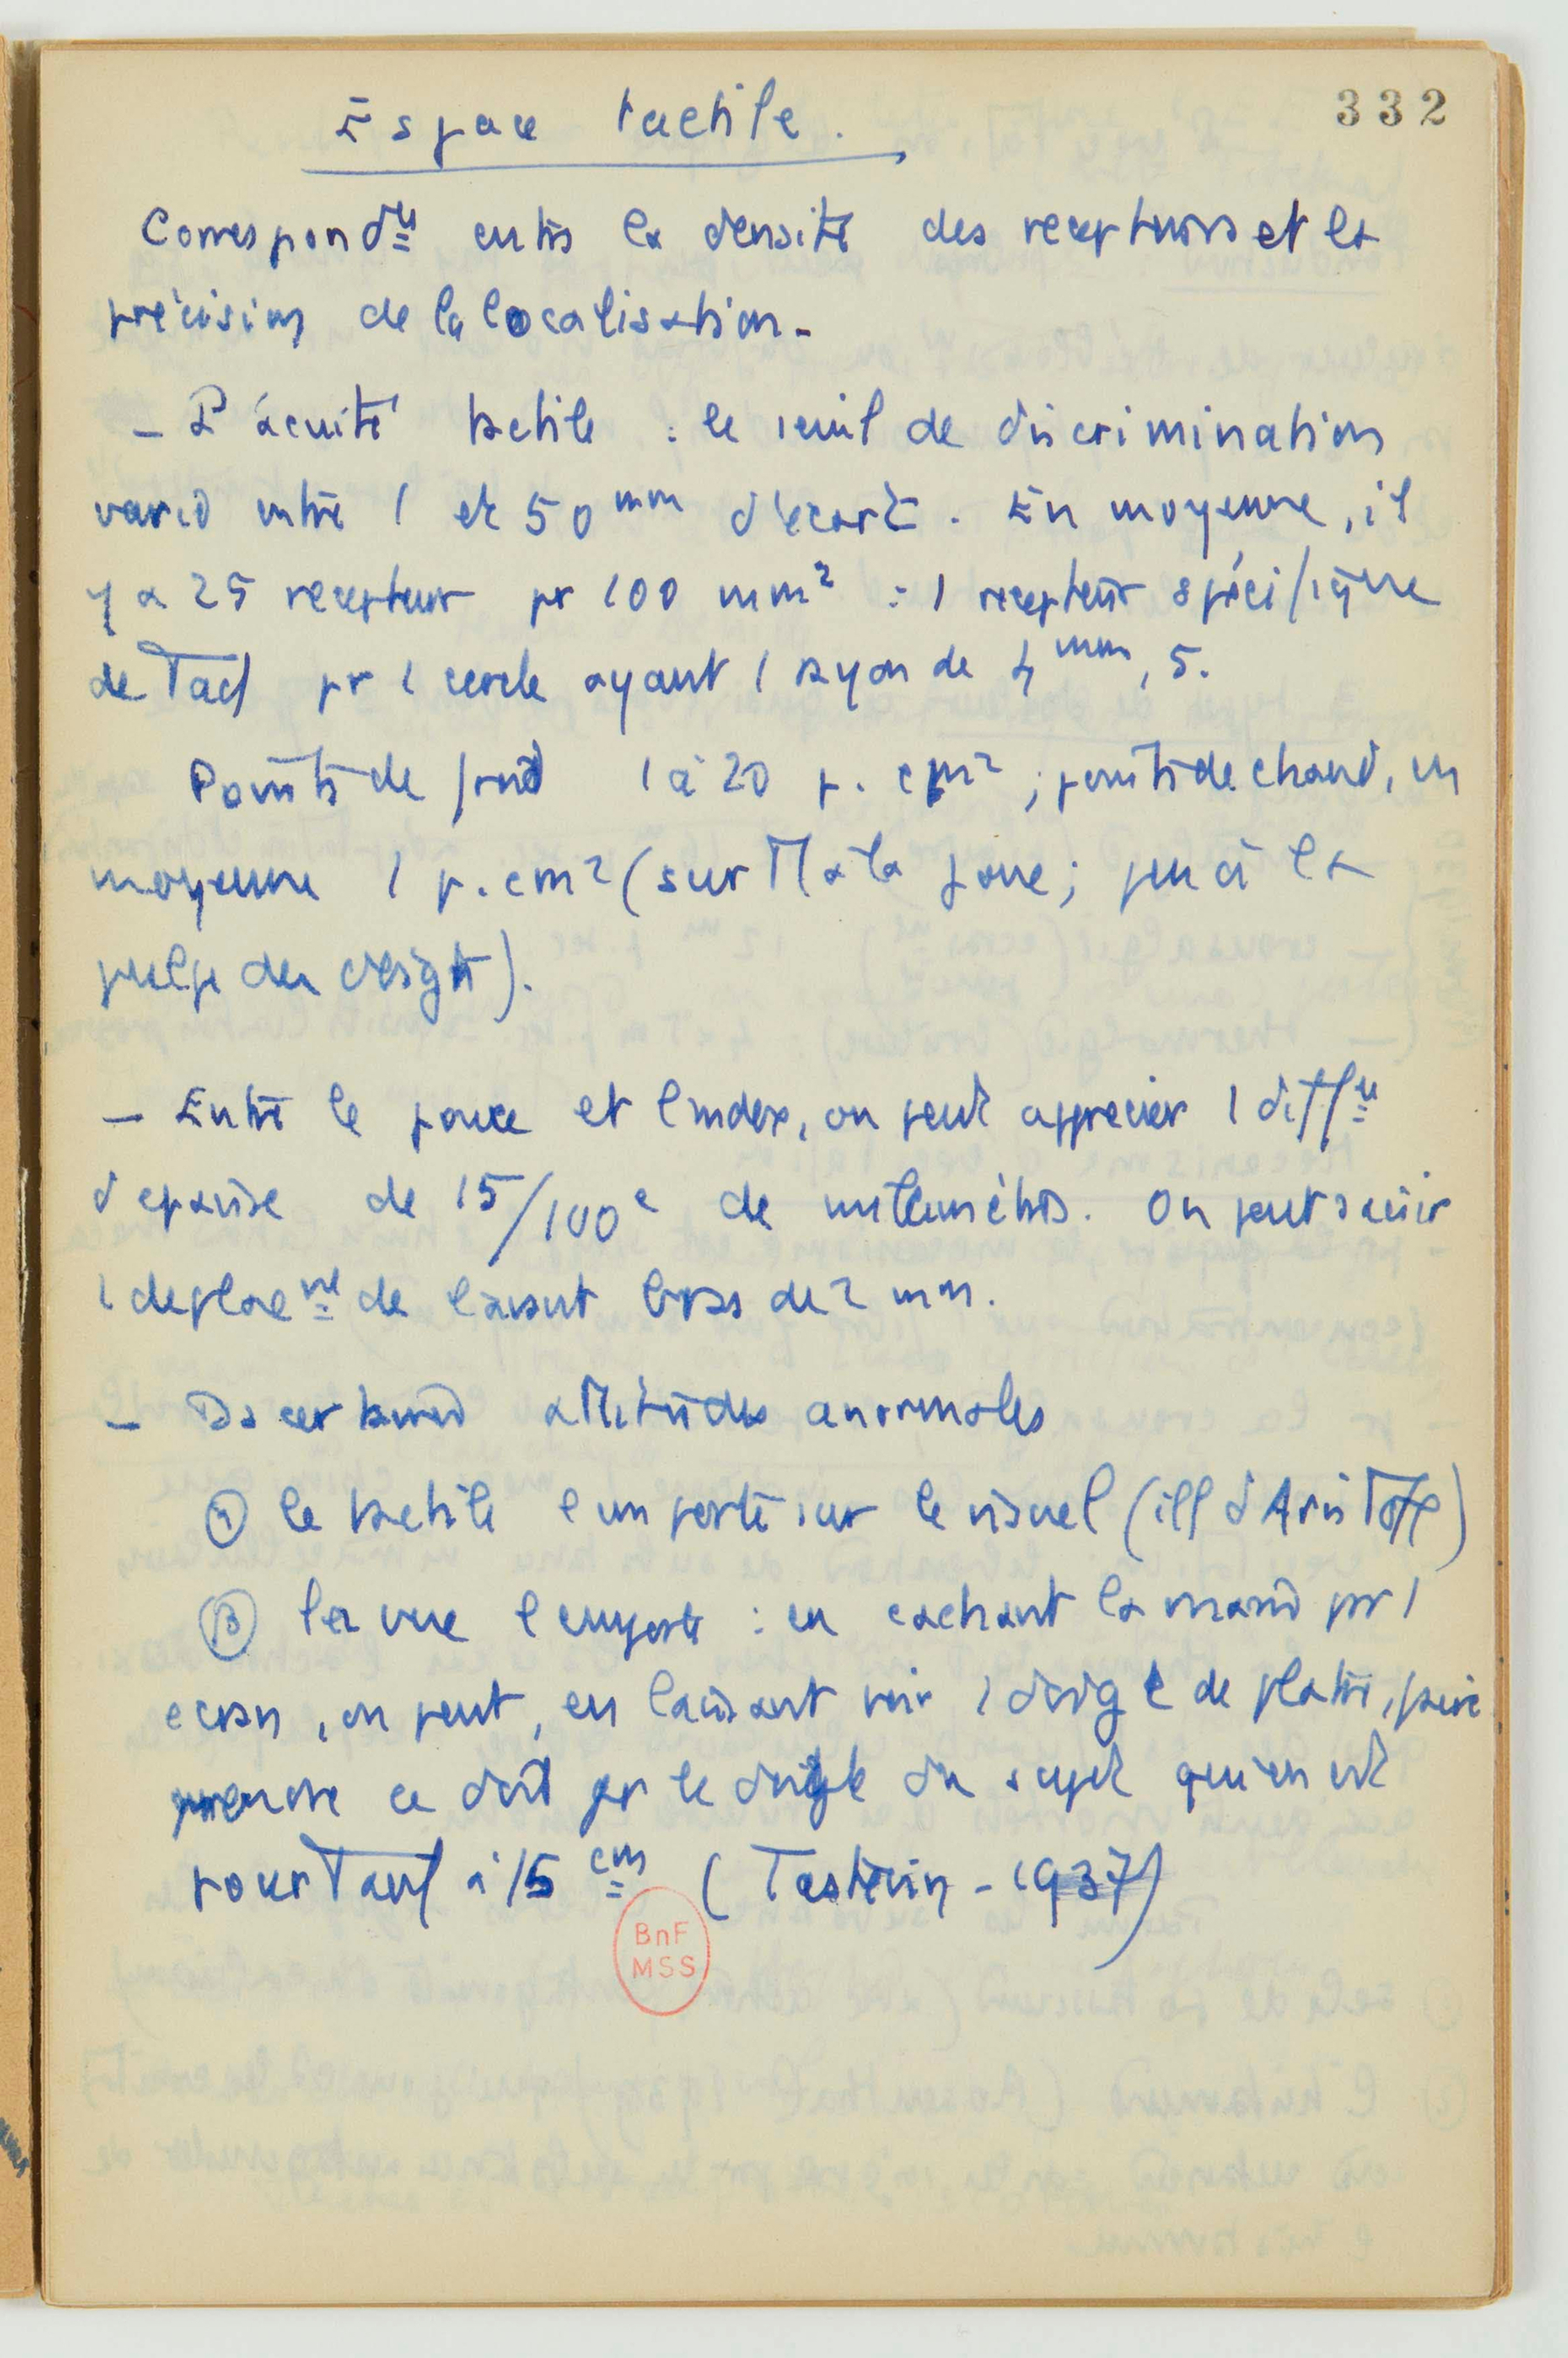 332
Espace tactile.
Correspondce entre la densité des recepteurs et la
précision de la localisation.
- L'acuité tactile : le seuil de discrimination
varie entre 1 et 50 mm d'écart. En moyenne, il
y a 25 recepteur pr 100 mm² : 1 recepteur spécifique
de Tact pr 1 cercle ayant 1 rayon de 4 mm, 5.
Points de froid 1 à 20 p. cm² ; points de chaud, en
moyenne 1 p. cm² (sur la joue ; peu à la
pulpe des doigts).
- Entre le pouce et l'index, on peut apprecier 1 diffce
d'epaisse de 15/100e de millimètres. On peut saisir
1 deplacemt de l'avant bras de 2 mm.
- Ds certaines attitudes anormales
α le tactile l'emporte sur le visuel (ill d'Aristote)
β la vue l'emporte : en cachant la main pr 1
ecran, on peut, en laissant voir 1 doigt de platre, faire
prendre ce doit pr le doigt du sujet qui en est
pourtant à 15 cm (Tastevin - 1937)
BnF
MSS